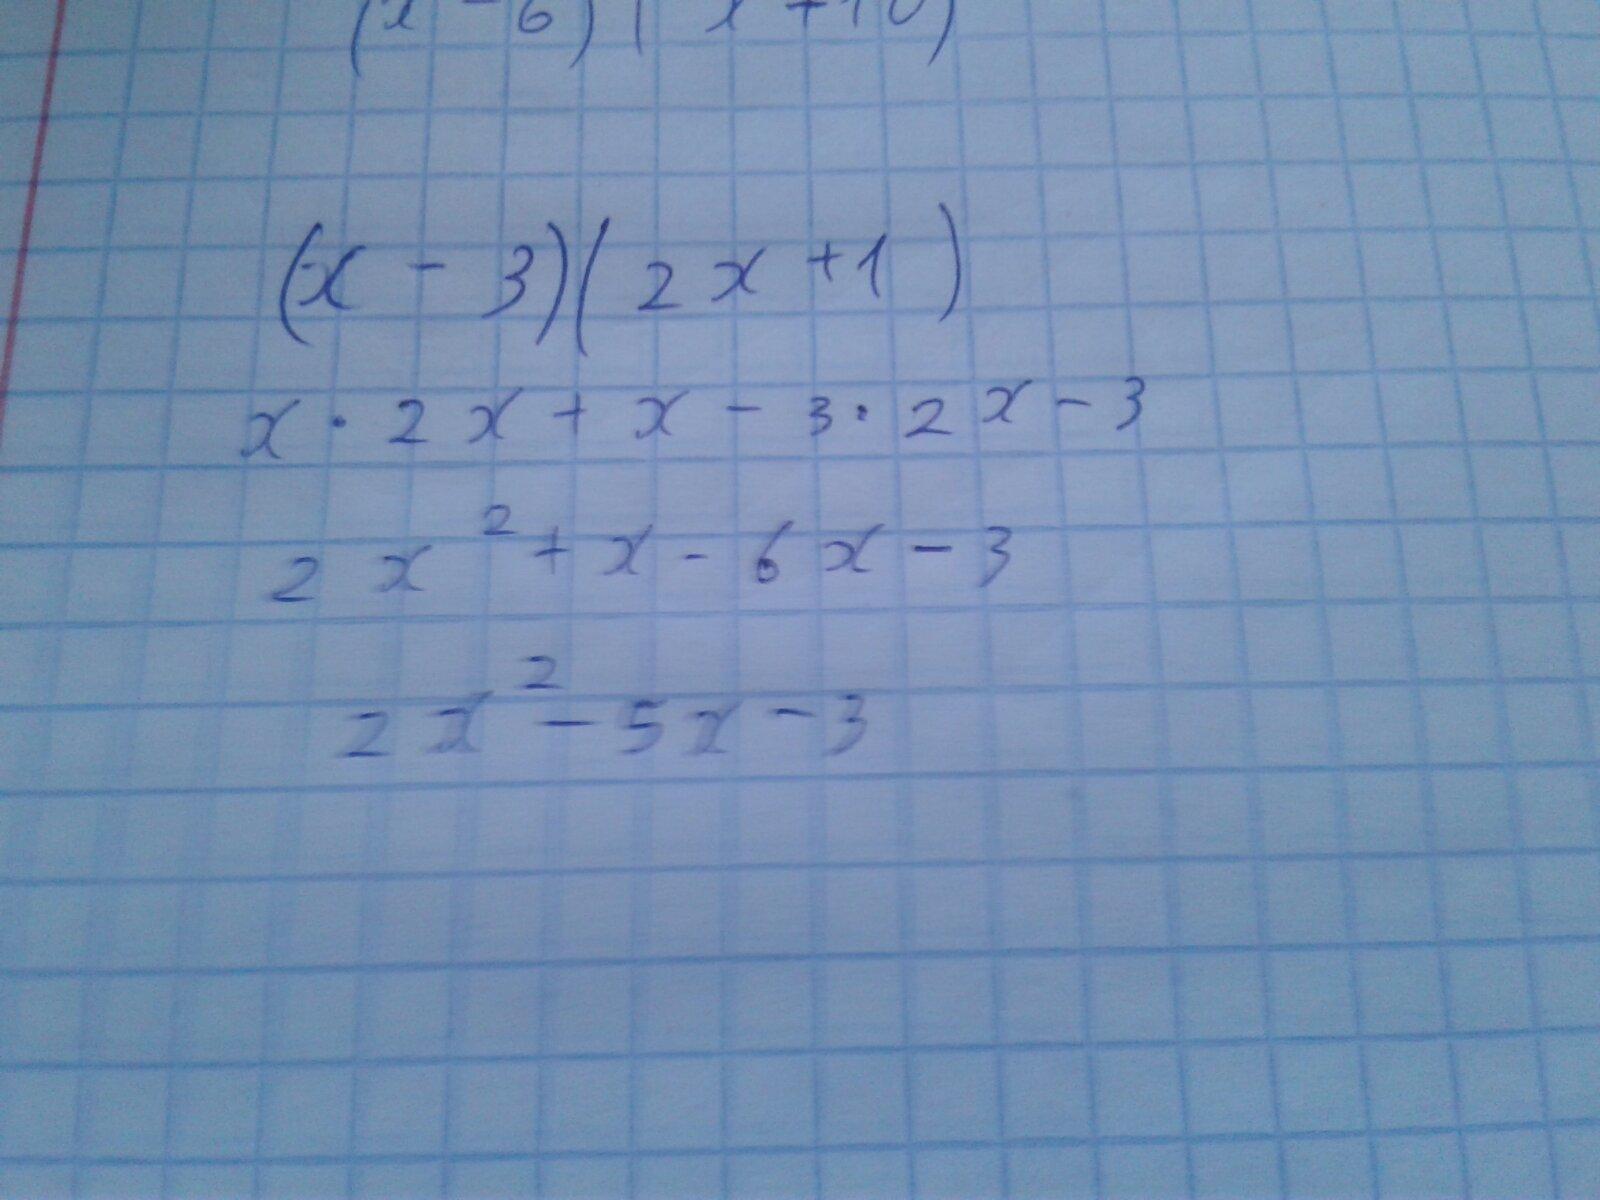 (x - 6)(x + 10)
(x - 3)(2x + 1)
x · 2x + x - 3 · 2x - 3
2x² + x - 6x - 3
2x² - 5x - 3